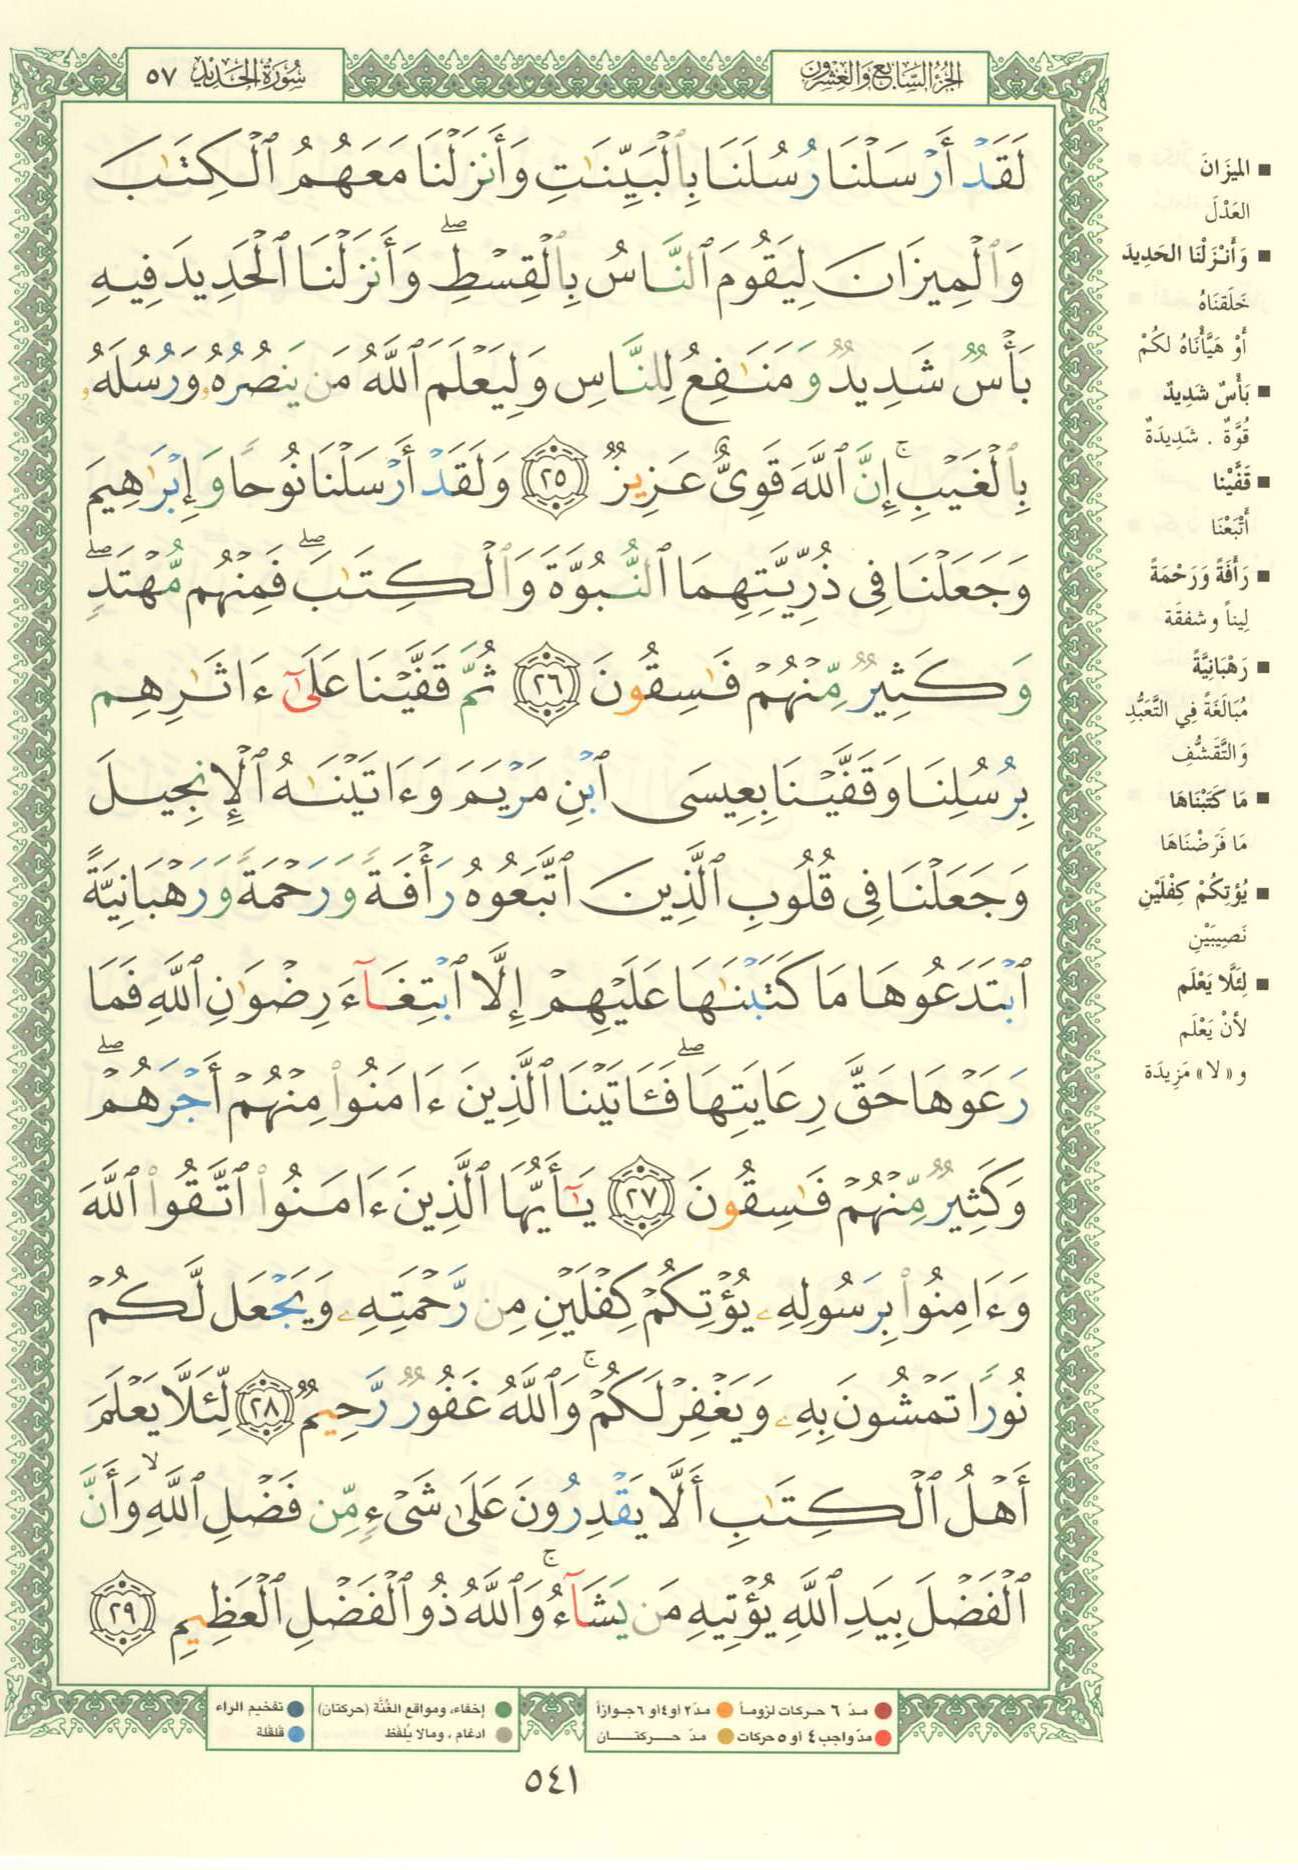 الجزء السابع والعشرون
سورة الحديد ٥٧
لَقَدْ أَرْسَلْنَا رُسُلَنَا بِٱلْبَيِّنَٰتِ وَأَنزَلْنَا مَعَهُمُ ٱلْكِتَٰبَ
وَٱلْمِيزَانَ لِيَقُومَ ٱلنَّاسُ بِٱلْقِسْطِ ۖ وَأَنزَلْنَا ٱلْحَدِيدَ فِيهِ
بَأْسٌ شَدِيدٌ وَمَنَٰفِعُ لِلنَّاسِ وَلِيَعْلَمَ ٱللَّهُ مَن يَنصُرُهُۥ وَرُسُلَهُۥ
بِٱلْغَيْبِ ۚ إِنَّ ٱللَّهَ قَوِىٌّ عَزِيزٌ ٢٥ وَلَقَدْ أَرْسَلْنَا نُوحًا وَإِبْرَٰهِيمَ
وَجَعَلْنَا فِى ذُرِّيَّتِهِمَا ٱلنُّبُوَّةَ وَٱلْكِتَٰبَ ۖ فَمِنْهُم مُّهْتَدٍ ۖ
وَكَثِيرٌ مِّنْهُمْ فَٰسِقُونَ ٢٦ ثُمَّ قَفَّيْنَا عَلَىٰٓ ءَاثَٰرِهِم
بِرُسُلِنَا وَقَفَّيْنَا بِعِيسَى ٱبْنِ مَرْيَمَ وَءَاتَيْنَٰهُ ٱلْإِنجِيلَ
وَجَعَلْنَا فِى قُلُوبِ ٱلَّذِينَ ٱتَّبَعُوهُ رَأْفَةً وَرَحْمَةً وَرَهْبَانِيَّةً
ٱبْتَدَعُوهَا مَا كَتَبْنَٰهَا عَلَيْهِمْ إِلَّا ٱبْتِغَآءَ رِضْوَٰنِ ٱللَّهِ فَمَا
رَعَوْهَا حَقَّ رِعَايَتِهَا ۖ فَـَٔاتَيْنَا ٱلَّذِينَ ءَامَنُوا۟ مِنْهُمْ أَجْرَهُمْ ۖ
وَكَثِيرٌ مِّنْهُمْ فَٰسِقُونَ ٢٧ يَٰٓأَيُّهَا ٱلَّذِينَ ءَامَنُوا۟ ٱتَّقُوا۟ ٱللَّهَ
وَءَامِنُوا۟ بِرَسُولِهِۦ يُؤْتِكُمْ كِفْلَيْنِ مِن رَّحْمَتِهِۦ وَيَجْعَل لَّكُمْ
نُورًا تَمْشُونَ بِهِۦ وَيَغْفِرْ لَكُمْ ۚ وَٱللَّهُ غَفُورٌ رَّحِيمٌ ٢٨ لِّئَلَّا يَعْلَمَ
أَهْلُ ٱلْكِتَٰبِ أَلَّا يَقْدِرُونَ عَلَىٰ شَىْءٍ مِّن فَضْلِ ٱللَّهِ ۙ وَأَنَّ
ٱلْفَضْلَ بِيَدِ ٱللَّهِ يُؤْتِيهِ مَن يَشَآءُ ۚ وَٱللَّهُ ذُو ٱلْفَضْلِ ٱلْعَظِيمِ ٢٩
■ الميزَانَ
العَدْلَ
■ وَأَنْزَلْنَا الحَدِيدَ
خَلَقنَاهُ
أَوْ هَيَّأْنَاهُ لكُمْ
■ بَأْسٌ شَدِيدٌ
قُوَّةٌ . شَدِيدَةٌ
■ قَفَّيْنا
أَتْبَعْنَا
■ رَأْفَةً وَرَحْمَةً
لِيناً وشفقَة
■ رَهْبَانِيَّةً
مُبَالَغَةً فِي التَّعَبُّدِ
وَالتَّقَشُّفِ
■ مَا كَتَبْنَاهَا
مَا فَرَضْنَاهَا
■ يُؤتِكُمْ كِفْلَيْنِ
نَصِيبَيْنِ
■ لِئَلَّا يَعْلَم
لأنْ يَعْلَم
و«لا» مَزِيدَة
مدّ ٦ حركات لزوماً
مدّ٢ أو٤أو ٦جوازاً
مدّ واجب٤ أو ٥ حركات
مدّ حركتان
إخفاء، ومواقع الغُنَّة (حركتان)
ادغام ، ومالا يُلفظ
تفخيم الراء
قلقلة
٥٤١